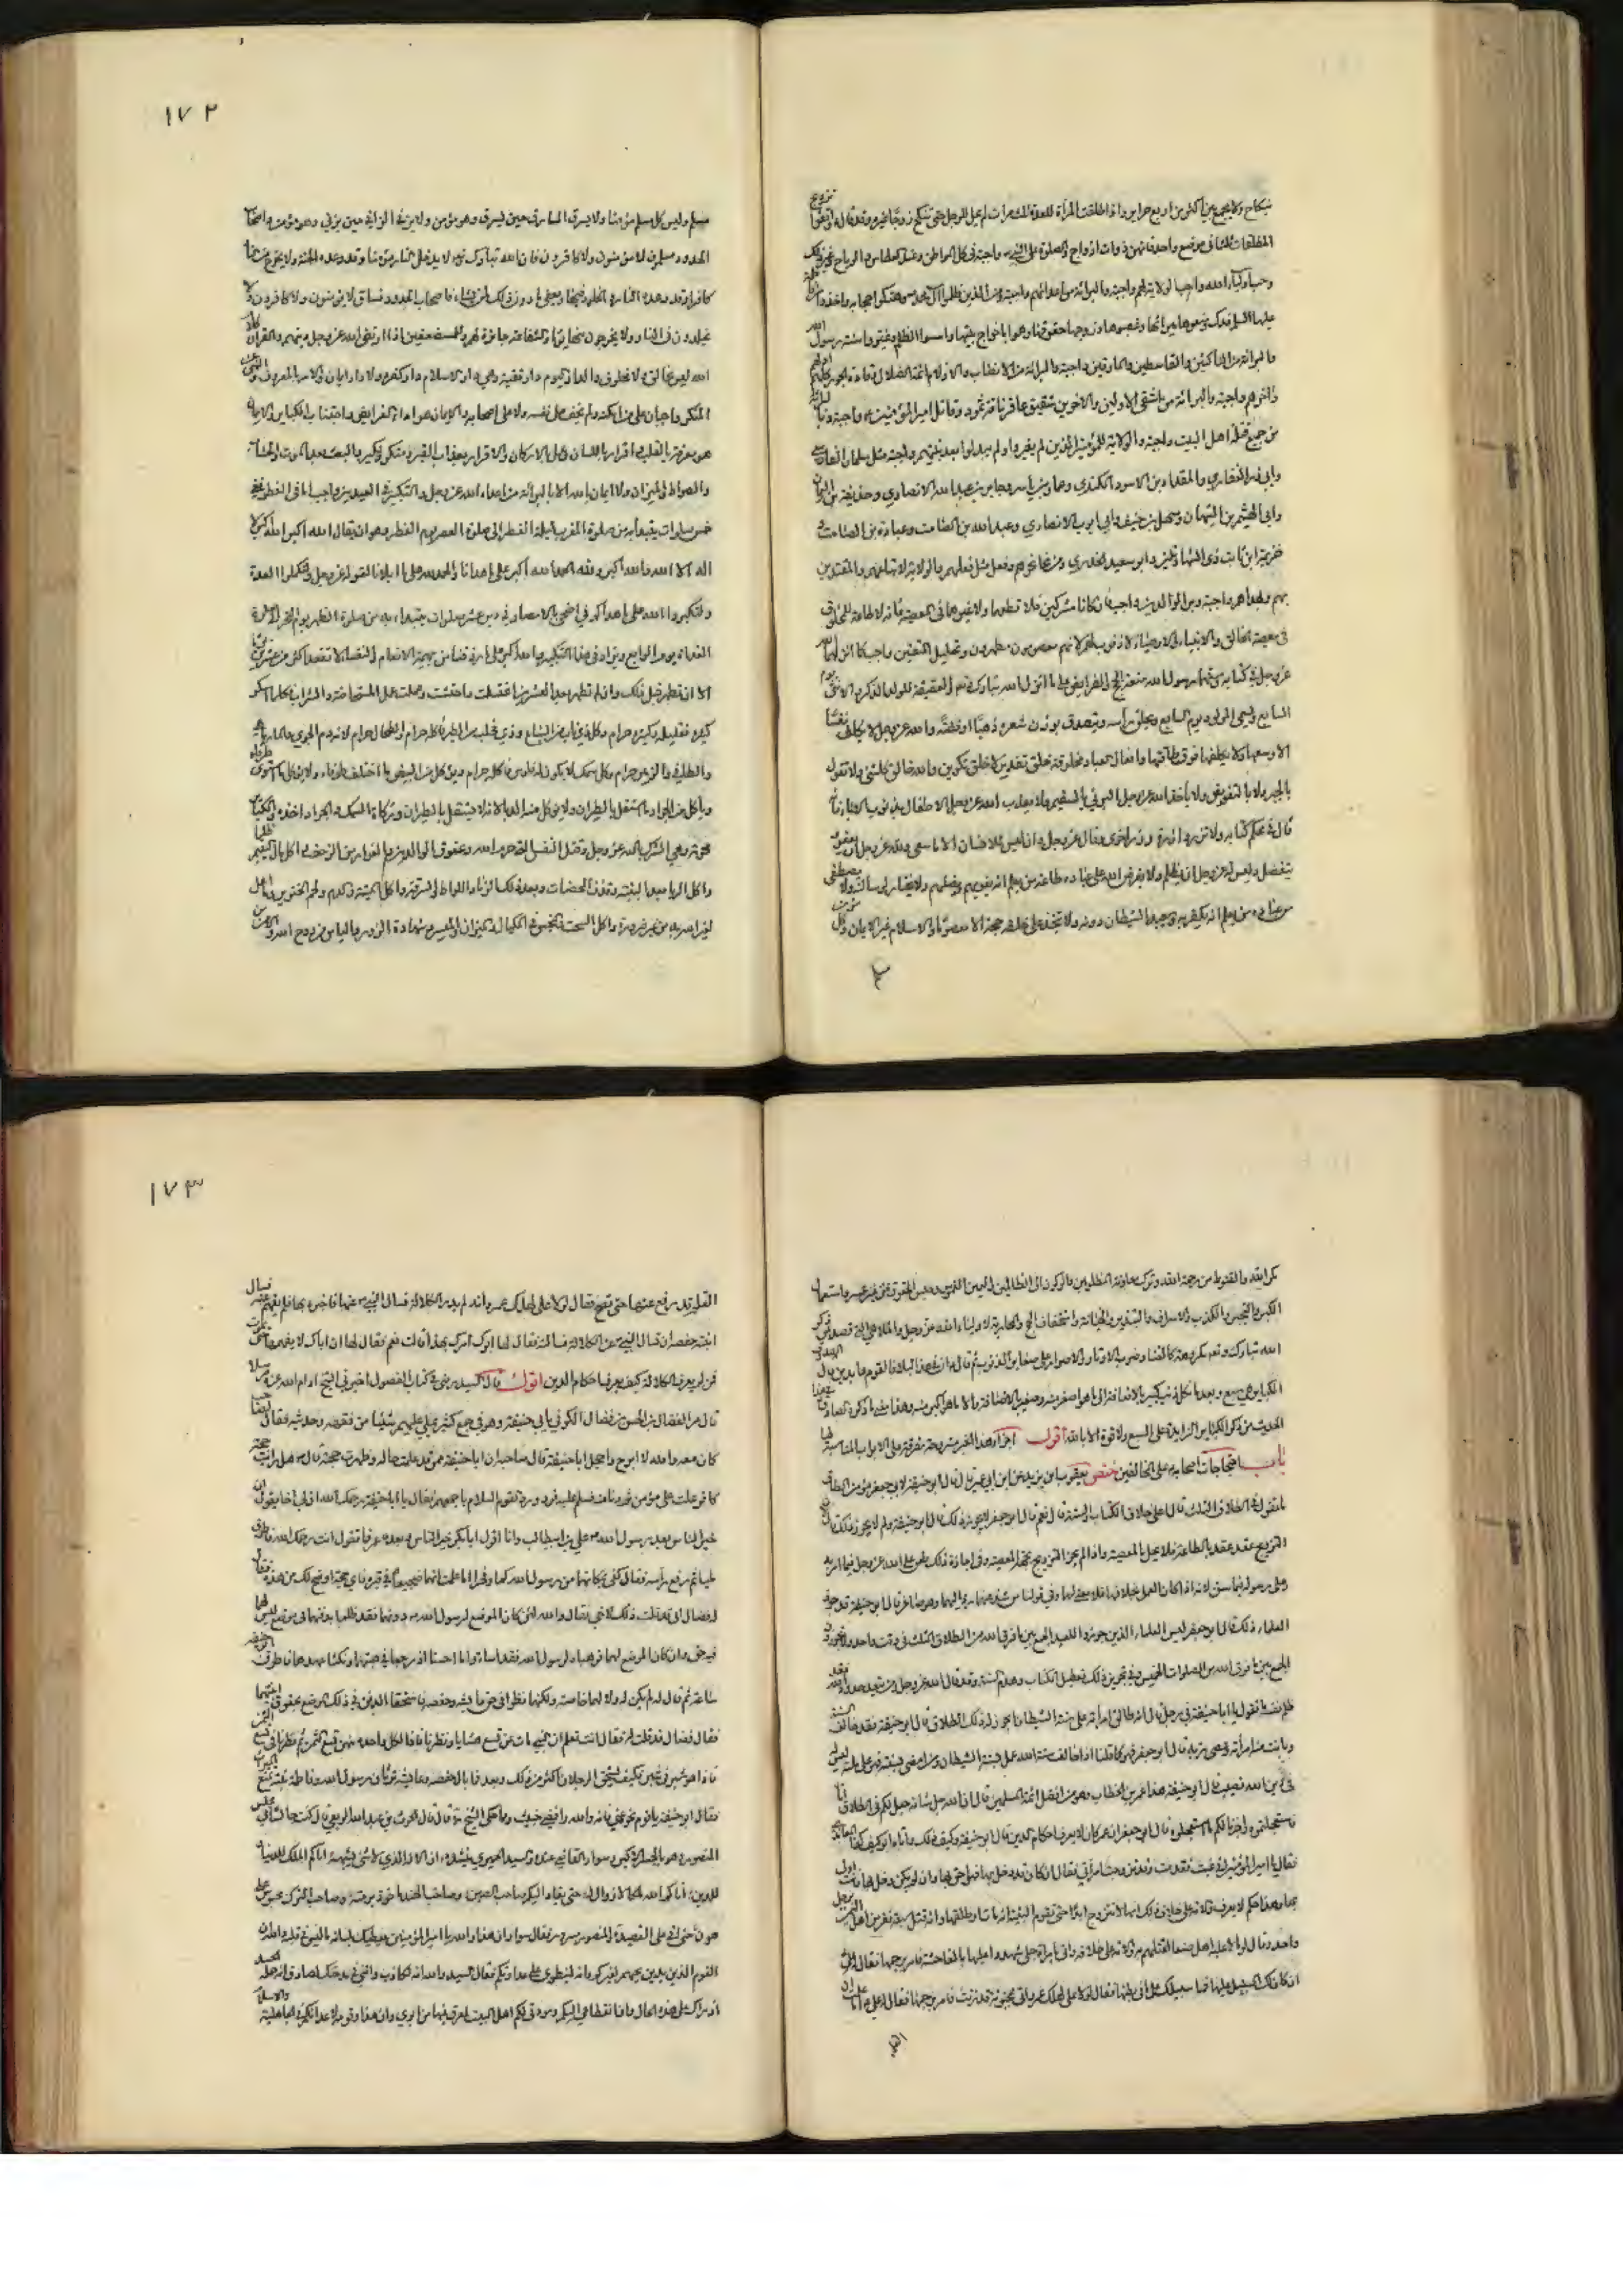 بنكاح ولا يجمع بين أكثر من أربع حراير واذا طلقت المرأة للعدة ثلث مرات لم يحل للرجل حتى تنكح زوجا غيره وقد قال ع اتقوا تزويج
المطلقات ثلثا في موضع واحد فانهن ذوات ازواج والصلوة على النبي ص واجبة في كل المواطن وعند العطاس والرياح وغير ذلك
وحب اولياء الله واجب والولاية لهم واجبة والبراءة من اعدائهم واجبة ومن الذين ظلموا آل محمد ص وهتكوا حجابه واخذوا من فاطمة
عليها السلم فدك ومنعوها ميراثها وغصبوها وزوجها حقوقهما وهموا باحراق بيتها واسسوا الظلم وغيروا سنة رسول الله
والبراءة من الناكثين والقاسطين والمارقين واجبة والبراءة من الانصاب والازلام ائمة الضلال وقادة الجور كلهم اولهم
وآخرهم واجبة والبراءة من اشقى الاولين والآخرين شقيق عاقر ناقة ثمود وقاتل امير المؤمنين ع واجبة والبراءة
من جميع قتلة اهل البيت واجبة والولاية للمؤمنين الذين لم يغيروا ولم يبدلوا بعد نبيهم واجبة مثل سلمان الفارسي
وابي ذر الغفاري والمقداد بن الاسود الكندي وعمار بن ياسر وجابر بن عبد الله الانصاري وحذيفة بن اليمان
وابي الهيثم بن التيهان وسهل بن حنيف وابي ايوب الانصاري وعبد الله بن الصامت وعبادة بن الصامت و
خزيمة ابن ثابت ذي الشهادتين وابو سعيد الخدري ومن نحا نحوهم وفعل مثل فعلهم والولاية لاتباعهم والمقتدين
بهم وبهداهم واجبة وبر الوالدين واجب فان كانا مشركين فلا تطعهما ولا غيرهما في المعصية فانه لا طاعة لمخلوق
في معصية الخالق والانبياء والاوصياء لا ذنوب لهم لانهم معصومون مطهرون وتحليل المتعتين واجب كما انزلهما الله
عز وجل في كتابه وسنهما رسول الله متعة الحج والفرايض على ما انزل الله تبارك وتعالى والعقيقة للولد الذكر والانثى يوم
السابع ويسمى المولود يوم السابع ويحلق رأسه ويتصدق بوزن شعره ذهبا او فضة والله عز وجل لا يكلف نفسا
الا وسعها ولا يكلفها فوق طاقتها وافعال العباد مخلوقة خلق تقدير لا خلق تكوين والله خالق كل شئ ولا نقول
بالجبر ولا بالتفويض ولا يأخذ الله عز وجل البرئ بالسقيم ولا يعذب الله عز وجل الاطفال بذنوب الاباء فانه
قال في محكم كتابه ولا تزر وازرة وزر اخرى وقال عز وجل وان ليس للانسان الا ما سعى ولله عز وجل ان يعفو و
يتفضل وليس له عز وجل ان يظلم ولا يفرض الله على عباده طاعة من يعلم انه يغويهم ويضلهم ولا يختار لرسالته ولا يصطفي
من عباده من يعلم انه يكفر به ويعبد الشيطان دونه ولا يتخذ على خلقه حجة الا معصوما والاسلام غير الايمان وكل مؤمن
١٧٢
مسلم وليس كل مسلم مؤمنا ولا يسرق السارق حين يسرق وهو مؤمن ولا يزني الزاني حين يزني وهو مؤمن واصحاب
الحدود مسلمون لا مؤمنون ولا كافرون فان الله تبارك وتعالى لا يدخل النار مؤمنا وقد وعده الجنة ولا يخرج من النار
كافرا وقد وعده النار والخلود فيها ويغفر ما دون ذلك لمن يشاء فاصحاب الحدود فساق لا مؤمنون ولا كافرون ولا
يخلدون في النار ولا يخرجون منها يوما والشفاعة جائزة لهم وللمستضعفين اذا ارتضى الله عز وجل دينهم والقرآن كلام
الله ليس بخالق ولا مخلوق والدار اليوم دار تقية وهي دار الاسلام لا دار كفر ولا دار ايمان والامر بالمعروف والنهي عن
المنكر واجبان على من امكنه ولم يخف على نفسه ولا على اصحابه والايمان هو اداء الفرايض واجتناب الكبائر والايمان
هو معرفة بالقلب واقرار باللسان وعمل بالاركان والاقرار بعذاب القبر ومنكر ونكير والبعث بعد الموت والحساب
والصراط والميزان ولا ايمان بالله الا بالبراءة من اعداء الله عز وجل والتكبير في العيدين واجب اما في الفطر ففي
خمس صلوات يبتدأ به من صلوة المغرب ليلة الفطر الى صلوة العصر يوم الفطر وهو ان يقال الله اكبر الله اكبر لا
اله الا الله والله اكبر ولله الحمد الله اكبر على ما هدانا والحمد لله على ما ابلانا لقوله عز وجل ولتكملوا العدة
ولتكبروا الله على ما هداكم وفي الاضحى بالامصار في دبر عشر صلوات يبتدأ به من صلوة الظهر يوم النحر الى صلوة
الغداة يوم الرابع ويزاد في هذا التكبير والله اكبر على ما رزقنا من بهيمة الانعام والنفساء لا تقعد اكثر من عشرين يوما
الا ان تطهر قبل ذلك وان لم تطهر بعد العشرين اغتسلت واحتشت وعملت عمل المستحاضة والشراب فكل ما اسكر
كثيره فقليله وكثيره حرام وكل ذي ناب من السباع وذي مخلب من الطير فاكله حرام والطحال حرام لانه دم والجري والمارماهي
والطافي والزمير حرام وكل سمك لا يكون له فلوس فاكله حرام ويؤكل من البيض ما اختلف طرفاه ولا يؤكل ما استوى طرفاه
ويأكل من الجراد ما استقل بالطيران ولا يؤكل منه الدبا لانه لا يستقل بالطيران وذكاة السمك والجراد اخذه والكبائر
محرمة وهي الشرك بالله عز وجل وقتل النفس التي حرم الله وعقوق الوالدين والفرار من الزحف واكل مال اليتيم ظلما
واكل الربا بعد البينة وقذف المحصنات وبعد ذلك الزنا واللواط والسرقة واكل الميتة والدم ولحم الخنزير وما اهل
لغير الله به من غير ضرورة واكل السحت والبخس في المكيال والميزان والميسر وشهادة الزور واليأس من روح الله والامن من
مكر الله والقنوط من رحمة الله وترك معاونة المظلومين والركون الى الظالمين واليمين الغموس وحبس الحقوق من غير عسر واستعمال
الكبر والتجبر والكذب والاسراف والتبذير والخيانة والاستخفاف بالحج والمحاربة لاولياء الله عز وجل والملاهي التي تصد عن ذكر
الله تبارك وتعالى مكروهة كالغنا وضرب الاوتار والاصرار على صغاير الذنوب ثم قال ع ان في هذا لبلاغا لقوم عابدين قال الصدوق
الكبائر هي سبع وبعدها فكل ذنب كبير بالاضافة الى ما هو اصغر منه وصغير بالاضافة الى ما هو اكبر منه وهذا معنى ما ذكره الصادق في هذا
الحديث من ذكر الكبائر الزايدة على السبع ولا قوة الا بالله أقول اجزاء هذا الخبر مشروحة مفرقة على الابواب المناسبة لها
باب احتجاجات اصحابه على المخالفين ختص يعقوب ابن يزيد عن ابن ابي عمير قال قال ابو حنيفة لابي جعفر مؤمن الطاق
ما تقول في الطلاق الثلث قال اعلى خلاف الكتاب والسنة قال نعم قال ابو جعفر لا يجوز ذلك قال ابو حنيفة ولم لا يجوز ذلك قال لان
التزويج عقد عقد بالطاعة فلا يحل بالمعصية واذا لم يجز التزويج بجهة المعصية وفي اجازة ذلك طعن على الله عز وجل فيما امر به
وعلى رسوله فيما سن لانه اذا كان العمل بخلافهما فلا معنى لهما وفي قولنا من شذ عنهما رد اليهما وهو صاغر قال ابو حنيفة قد جوز
العلماء ذلك قال ابو جعفر ليس العلماء الذين جوزوا للعبد الجمع بين ما فرق الله من الطلاق الثلث في وقت واحد ولا يجوز
الجمع بين ما فرق الله من الصلوات الخمس وفي تجويز ذلك تعطيل الكتاب وهدم السنة وقد قال الله عز وجل ومن يتعد حدود الله فقد
ظلم نفسه ما تقول يا ابا حنيفة في رجل قال انه طالق امرأته على سنة الشيطان ايجوز له ذلك الطلاق قال ابو حنيفة فقد خالف السنة
وبانت منه امرأته وعصى ربه قال ابو جعفر فهو كما قلنا اذا خالف سنة الله عمل بسنة الشيطان ومن امضى بسنته فهو على ملته ليس له
في دين الله نصيب قال ابو حنيفة هذا عمر بن الخطاب وهو من افضل ائمة المسلمين قال ان الله جل ثناؤه جعل لكم في الطلاق اناة
فاستعجلتموه واجزنا لكم ما استعجلتموه قال ابو جعفر ان عمر كان لا يعرف احكام الدين قال ابو حنيفة وكيف ذلك
فقال يا امير المؤمنين اني غبت فقدمت وقد تزوجت امرأتي فقال ان كان قد دخل بها فهو احق بها وان لم يكن دخل بها فانت اولى
بها وهذا حكم لا يعرف
واحد وقال لو
القلم قد رفع عنها حتى تصح فقال لولا علي لهلك عمر وانه لم يدر الكلالة فسأل النبي ص عنها فاخبره بها فلم يفهم عنه فسأل
ابنته حفصة ان تسأل النبي ص عن الكلالة فسألته فقال لها ابوك امرك بهذا قالت نعم فقال لها ان اباك لا يفهمها حتى يموت
فمن لم يعرف الكلالة كيف يعرف احكام الدين اقول قال السيد المرتضى في كتاب الفصول اخبرني الشيخ ادام الله عزه مرسلا
قال مر الفضال بن الحسن بن فضال الكوفي بابي حنيفة وهو في جمع كثير يملي عليهم شيئا من فقهه وحديثه فقال لصاحب
كان معه والله لا ابرح او اخجل ابا حنيفة قال صاحبه ان ابا حنيفة ممن قد علمت حاله وظهرت حجته قال مه هل رأيت حجة
كافر علت على مؤمن ثم دنا منه فسلم عليه فرد ورد القوم السلام باجمعهم فقال يا ابا حنيفة رحمك الله ان لي اخا يقول ان
خير الناس بعد رسول الله ص علي بن ابي طالب وانا اقول ابا بكر خير الناس وبعده عمر فما تقول انت رحمك الله فاطرق
مليا ثم رفع رأسه فقال كفى بمكانهما من رسول الله كرما وفخرا اما علمت انهما ضجيعاه في قبره فاي حجة اوضح لك من هذه فقال
له فضال اني قد قلت ذلك لاخي فقال والله لئن كان الموضع لرسول الله ص دونهما فقد ظلما بدفنهما في موضع ليس لهما
فيه حق وان كان الموضع لهما فوهباه لرسول الله فقد اساءا وما احسنا اذ رجعا في هبتهما ونكثا عهدهما فاطرق ابو حنيفة
ساعة ثم قال له لم يكن له ولا لهما خاصة ولكنهما نظرا في حق عايشة وحفصة فاستحقا الدفن في ذلك الموضع بحقوق ابنتيهما
فقال فضال قد قلت له فقال انت تعلم ان النبي مات عن تسع حشايا ونظرنا فاذا لكل واحدة منهن تسع الثمن ثم نظرنا في تسع الثمن
فاذا هو شبر في شبر فكيف يستحق الرجلان اكثر من ذلك وبعد فما بال حفصة وعايشة ترثان رسول الله وفاطمة بنته تمنع الميراث
فقال ابو حنيفة يا قوم نحوه عني فانه والله رافضي خبيث ومما حكى الشيخ ره قال قال الحرث بن عبد الله الربعي قال كنت جالسا في مجلس
المنصور وهو بالجسر الاكبر وسوار القاضي عنده والسيد الحميري ينشده ان الاله الذي لا شئ يشبهه اتاكم الملك للدنيا و
للدين اتاكم الله ملكا لا زوال له حتى يقاد اليكم صاحب الصين وصاحب الهند ماخوذ برمته وصاحب الترك محبوس على
هون حتى اتى على القصيدة والمنصور مسرور فقال سوار ان هذا والله يا امير المؤمنين يعطيك بلسانه ما ليس في قلبه والله ان
القوم الذين يدين بحبهم لغيركم وانه لينطوي على عداوتكم فقال السيد والله انه لكاذب وانني في مدحتك لصادق وانه حمله الحسد
اذ رآك على هذه الحال وان انقطاعي اليكم ومودتي لكم اهل البيت لعرق فيها من ابوي وان هذا وقومه لاعداؤكم في الجاهلية والاسلام
١٧٣